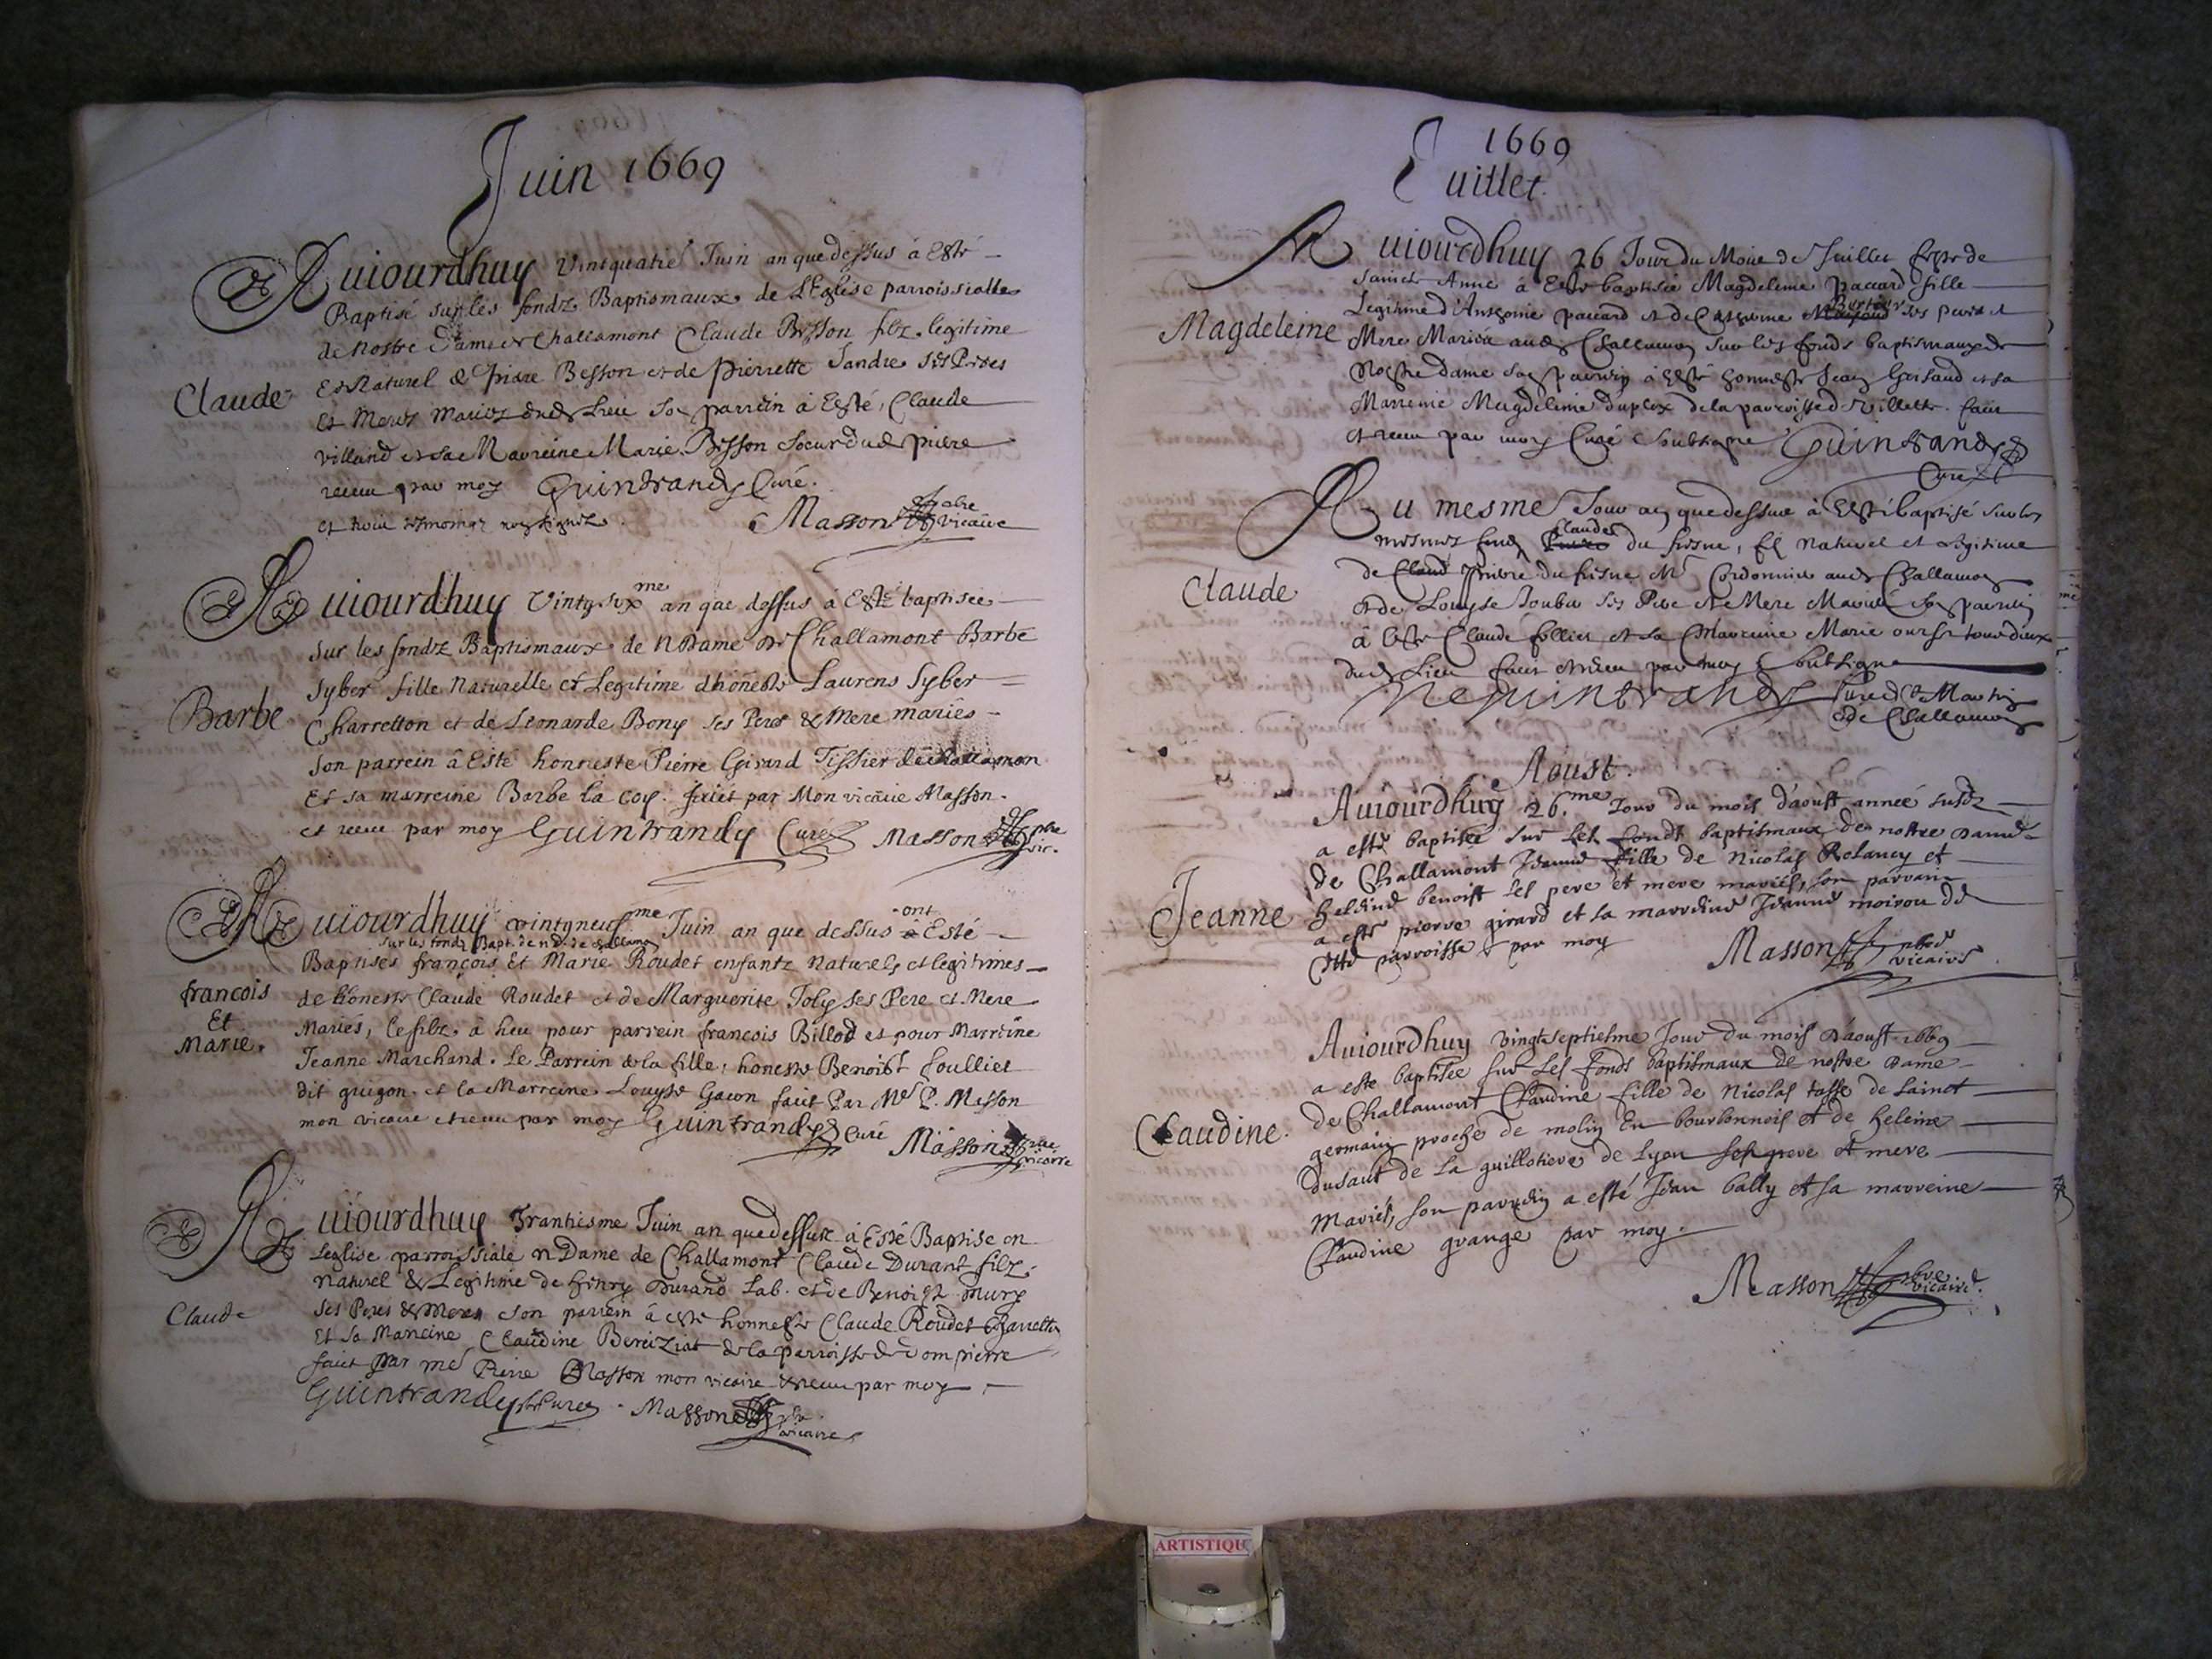 Juin 1669
Auiourdhuy Vintquatre Juin an que dessus à Esté
Baptisé sur les fondz Baptismaux de L'Eglise parroissialle
de Nostre Dame de Challamont Claude Besson filz legitime
Claude
Et Naturel de Piere Besson et de Pierrette Jandre ses Peres
Et Meres Mariez dud Lieu Son parrein à Esté, Claude
Villand et sa Marreine Marie Besson Soeur dud piere
receu par moy Guintrandy Curé.
et n'ont
Masson vicaire
Auiourdhuy Vintysixme an que dessus à Esté baptisee
Sur les fondz Baptismaux de N Dame de Challamont Barbe
Syber fille Naturelle et Legitime dhoneste Laurens Syber
Barbe
Charretton et de Leonarde Bony ses Peres & Mere maries
Son parrein à Esté honneste Pierre Girard Tissier de challamon
Et sa marreine Barbe la Coy. faict par Mon vicaire Masson.
et receu par moy Guintrandy Curé Masson pbre vic.
Auiourdhuy vintyneufme Juin an que dessus ont Esté
sur les fondz Bapt. de n D. de challamon
Baptisés françois Et Marie Roudet enfantz Naturelz et legitimes
françois
Et
Marie.
de honeste Claude Roudet et de Marguerite Joly ses Pere et Mere
Mariés, le filz à heu pour parrein françois Billod et pour Marreine
Jeanne Marchand. Le Parrein de la fille, honeste Benoist foulliet
dit guigon. et la Marreine Louyse Gacon faict Par Me P. Masson
mon vicaire et receu par moy Guintrandy Curé Masson vicaire
Auiourdhuy Trantiesme Juin an que dessus à Esté Baptise en
Leglise parroissiale n Dame de Challamont Claude Durant filz
Naturel & Legitime de Henry Durand Lab. et de Benoiste Mury
Claude
Ses Peres & Meres Son parrein à esté honneste Claude Roudet
Et sa Marreine Claudine Bereiziat de la parroisse de Dompierre
faict par me Pierre Masson mon vicaire & receu par moy
Guintrandy Curé Masson vicaire
1669
Juillet.
Auiourdhuy 26 Jour du Mois de Juillet feste de
Saincte Anne à Esté baptisée Magdeleine Paccard fille
Legitime d'Anthoine paccard et de Catherine ses peres et
Magdeleine
Mere Mariés aud Challamon sur les fonds baptismaux de
Nostre Dame son parrein à Esté honneste Jean et sa
Marreine Magdeleine Duplex de la parroisse de Villette. faict
et receu par moy Curé Soubsigne Guintrandy
Curé
Au mesme Jour an que dessus à Esté baptisé sur les
mesmes fondz Claude du fresne, filz Naturel et Legitime
de Claud Prierre du fresne Me Cordonnier aud Challamon
Claude
et de Louyse Jouber ses Pere et Mere Mariés son parrein
à Esté Claude follier et sa Marreine Marie tous deux
dud Lieu faict et receu par moy Soubsigne
Guintrandy Curé de St Martin
de Challamon
Aoust.
Auiourdhuy 26.me Jour du mois d'aoust année susdz
a esté baptisée sur les fonds baptismaux de nostre dame
de Challamont Jeanne fille de Nicolas Relancy et
Jeanne
Heleine benoist ses pere et mere mariés, son parrain
a esté pierre girard et sa marreine Jeanne moirou de
cette parroisse par moy
Masson pbre vicaire
Auiourdhuy vingtseptiesme Jour du mois d'aoust 1669
a este baptisée sur les fonds baptismaux de nostre dame
de Challamont Claudine fille de Nicolas tasse de sainct
Claudine.
germain proche de molin En bourbonnois et de heleine
dusaut de la guillotiere de Lyon ses pere et mere
mariés, son parrein a esté Jean bally et sa marreine
Claudine grange par moy.
Masson pbre vicaire.
ARTISTIQU